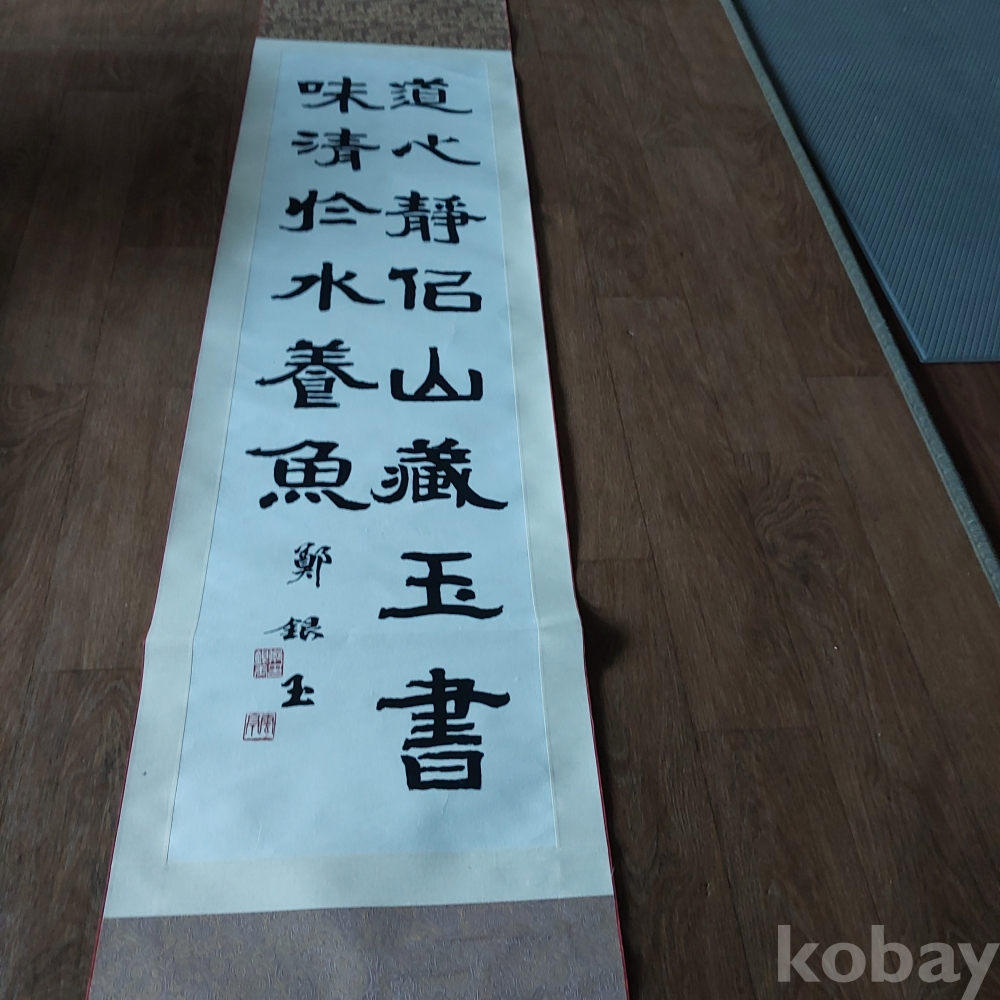 道心靜佀山藏玉書
味清於水養魚
鄭銀玉
kobay